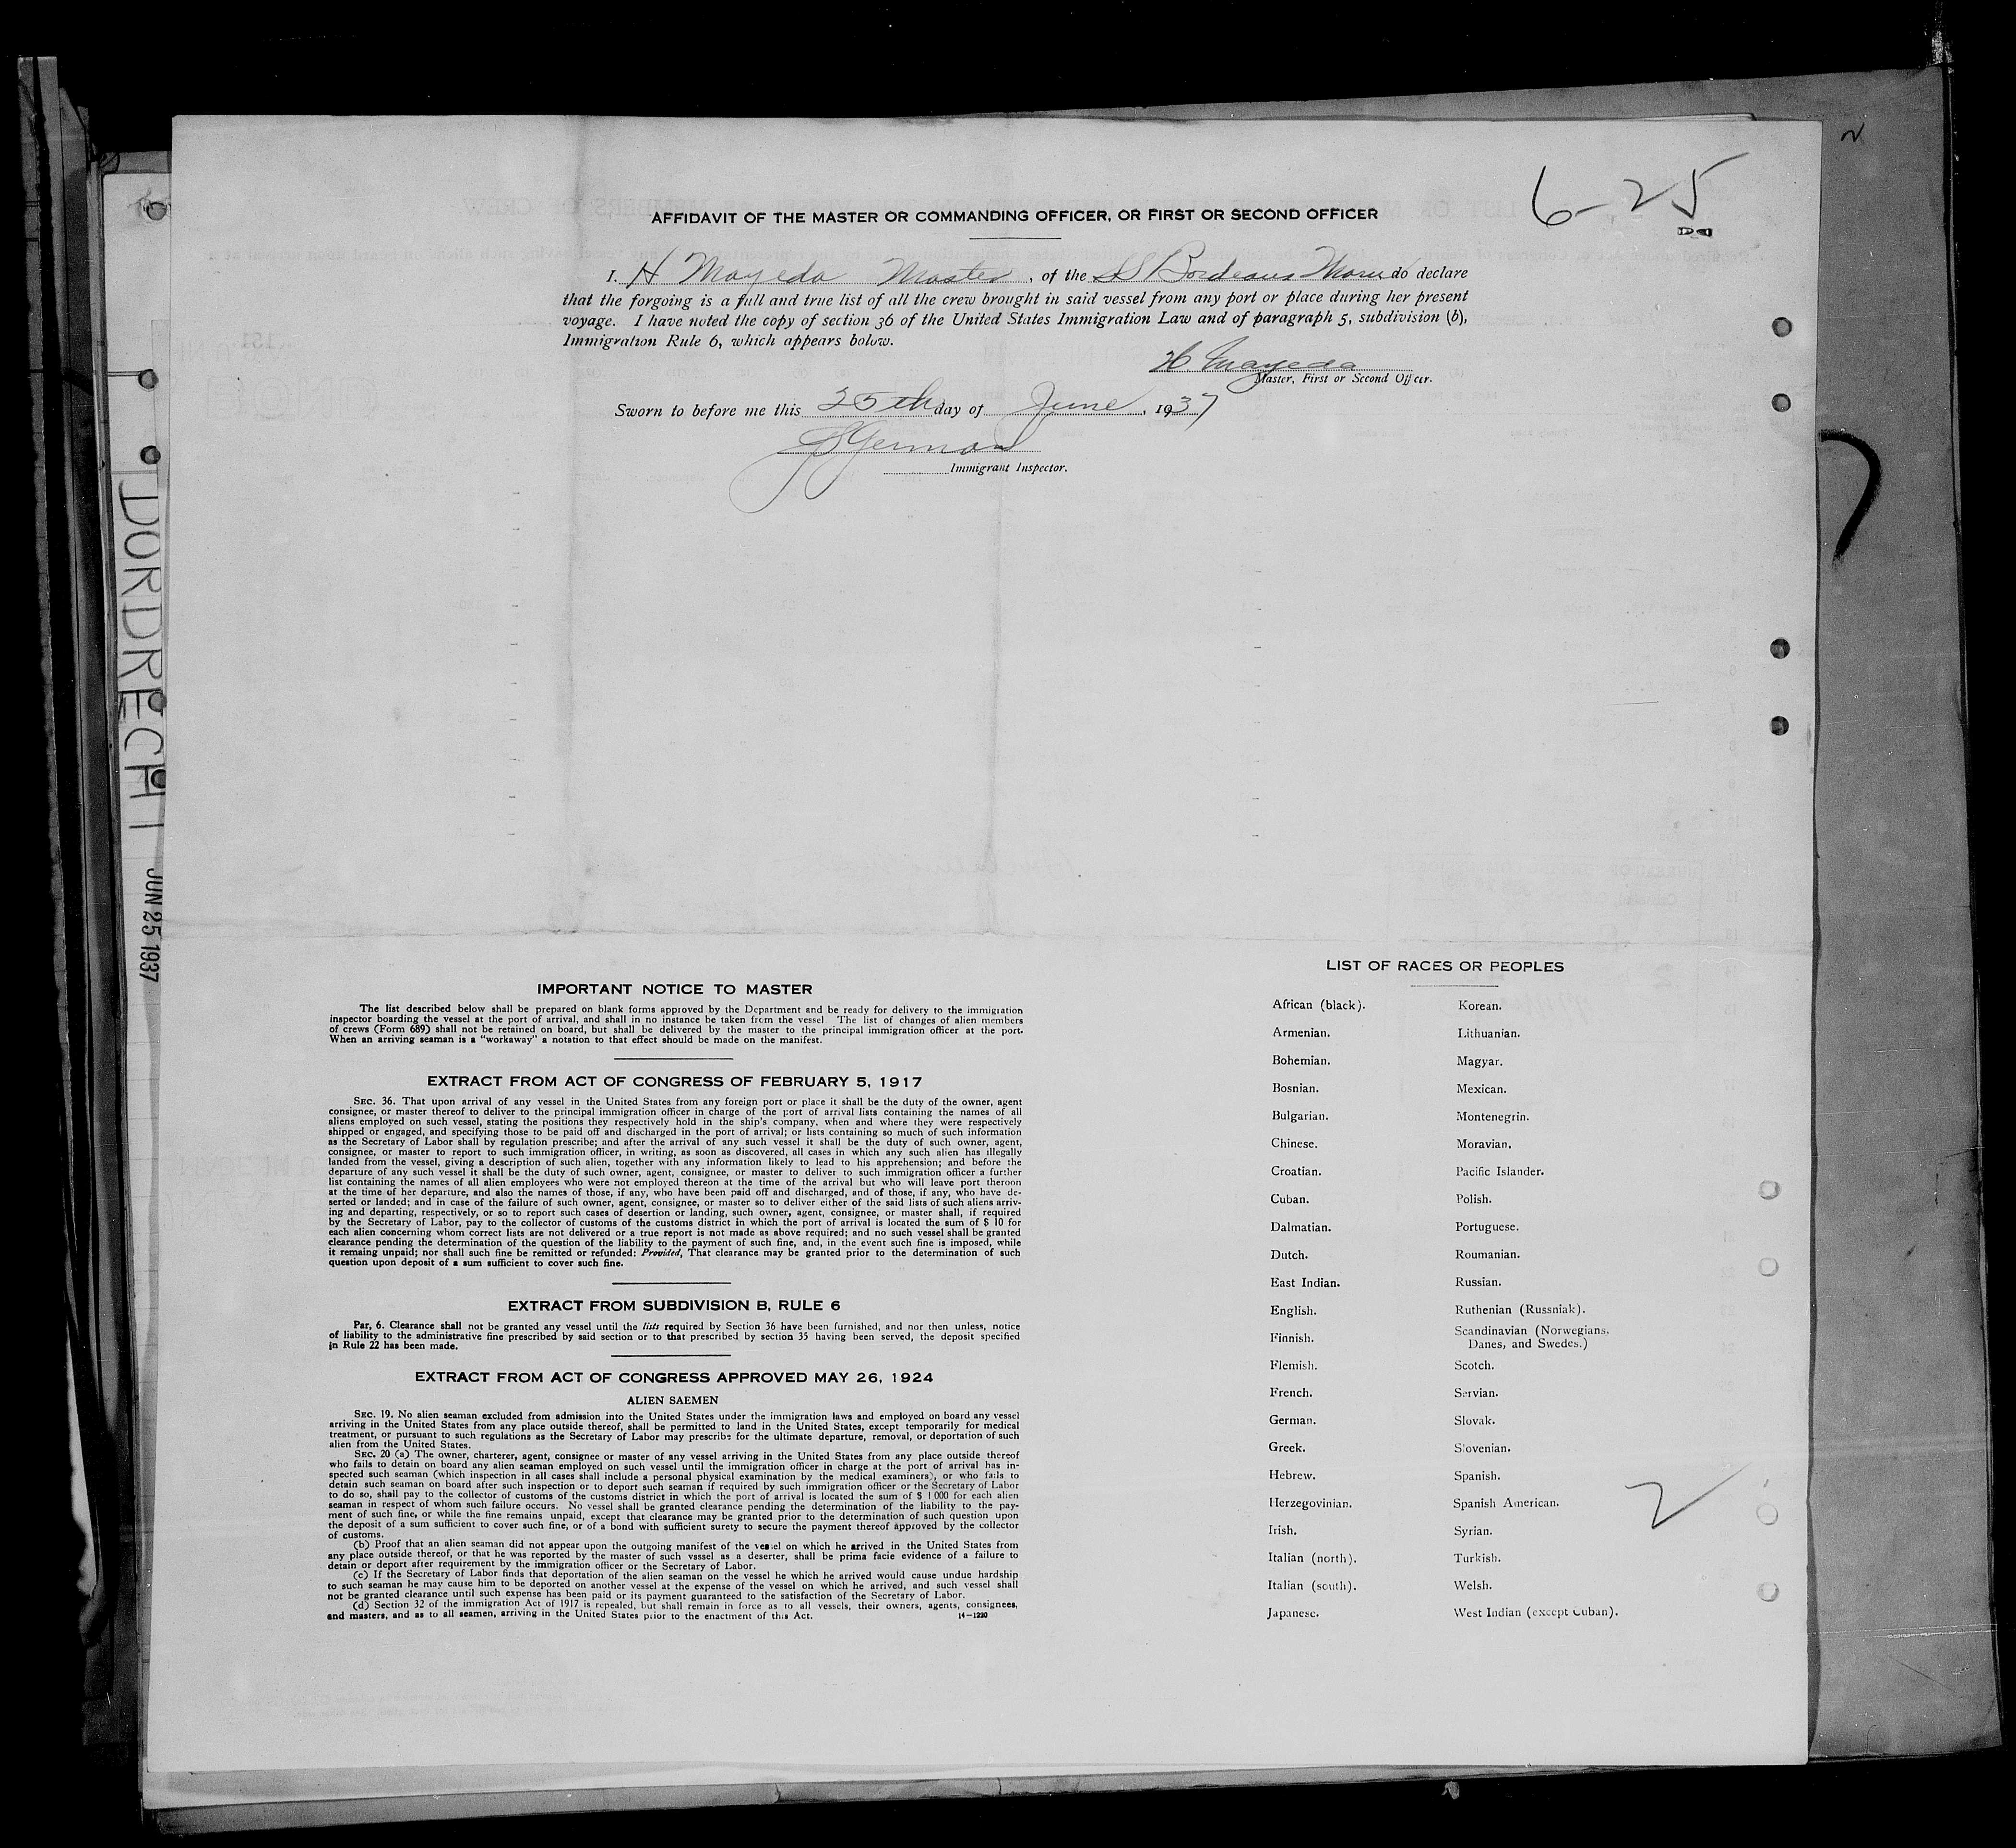 6-25
AFFIDAVIT OF THE MASTER OR COMMANDING OFFICER, OR FIRST OR SECOND OFFICER
I, H Mayeda Master, of the SS Bordeaux Maru do declare
that the forgoing is a full and true list of all the crew brought in said vessel from any port or place during her present
voyage. I have noted the copy of section 36 of the United States Immigration Law and of paragraph 5, subdivision (b),
Immigration Rule 6, which appears bolow.
H. Mayeda
Master, First or Second Officer.
Sworn to before me this 25th day of June, 1937
Immigrant Inspector.
DORDRECHT
JUN 25 1937
IMPORTANT NOTICE TO MASTER
The list described below shall be prepared on blank forms approved by the Department and be ready for delivery to the immigration
inspector boarding the vessel at the port of arrival, and shall in no instance be taken from the vessel The list of changes of alien members
of crews (Form 689) shall not be retained on board, but shall be delivered by the master to the principal immigration officer at the port.
When an arriving seaman is a "workaway" a notation to that effect should be made on the manifest.
EXTRACT FROM ACT OF CONGRESS OF FEBRUARY 5, 1917
SEC. 36. That upon arrival of any vessel in the United States from any foreign port or place it shall be the duty of the owner, agent
consignee, or master thereof to deliver to the principal immigration officer in charge of the port of arrival lists containing the names of all
aliens employed on such vessel, stating the positions they respectively hold in the ship's company, when and where they were respectively
shipped or engaged, and specifying those to be paid off and discharged in the port of arrival; or lists containing so much of such information
as the Secretary of Labor shall by regulation prescribe; and after the arrival of any such vessel it shall be the duty of such owner, agent,
consignee, or master to report to such immigration officer, in writing, as soon as discovered, all cases in which any such alien has illegally
landed from the vessel, giving a description of such alien, together with any information likely to lead to his apprehension; and before the
departure of any such vessel it shall be the duty of such owner, agent, consignee, or master to deliver to such immigration officer a further
list containing the names of all alien employees who were not employed thereon at the time of the arrival but who will leave port theroon
at the time of her departure, and also the names of those, if any, who have been paid off and discharged, and of those, if any, who have de-
serted or landed; and in case of the failure of such owner, agent, consignee, or master so to deliver either of the said lists of such aliens arriv-
ing and departing, respectively, or so to report such cases of desertion or landing, such owner, agent, consignee, or master shall, if required
by the Secretary of Labor, pay to the collector of customs of the customs district in which the port of arrival is located the sum of $ 10 for
each alien concerning whom correct lists are not delivered or a true report is not made as above required; and no such vessel shall be granted
clearance pending the determination of the question of the liability to the payment of such fine, and, in the event such fine is imposed, while
it remaing unpaid; nor shall such fine be remitted or refunded: Provided, That clearance may be granted prior to the determination of such
question upon deposit of a sum sufficient to cover such fine.
EXTRACT FROM SUBDIVISION B, RULE 6
Par, 6. Clearance shall not be granted any vessel until the lists required by Section 36 have been furnished, and nor then unless, notice
of liability to the administrative fine prescribed by said section or to that prescribed by section 35 having been served, the deposit specified
in Rule 22 has been made.
EXTRACT FROM ACT OF CONGRESS APPROVED MAY 26, 1924
ALIEN SAEMEN
SEC. 19. No alien seaman excluded from admission into the United States under the immigration laws and employed on board any vessel
arriving in the United States from any place outside thereof, shall be permitted to land in the United States, except temporarily for medical
treatment, or pursuant to such regulations as the Secretary of Labor may prescribe for the ultimate departure, removal, or deportation of such
alien from the United States.
SEC. 20 (a) The owner, charterer, agent, consignee or master of any vessel arriving in the United States from any place outside thereof
who fails to detain on board any alien seaman employed on such vessel until the immigration officer in charge at the port of arrival has in-
spected such seaman (which inspection in all cases shall include a personal physical examination by the medical examiners), or who fails to
detain such seaman on board after such inspection or to deport such seaman if required by such immigration officer or the Secretary of Labor
to do so, shall pay to the collector of customs of the customs district in which the port of arrival is located the sum of $ 1 000 for each alien
seaman in respect of whom such failure occurs. No vessel shall be granted clearance pending the determination of the liability to the pay-
ment of such fine, or while the fine remains unpaid, except that clearance may be granted prior to the determination of such question upon
the deposit of a sum sufficient to cover such fine, or of a bond with sufficient surety to secure the payment thereof approved by the collector
of customs.
(b) Proof that an alien seaman did not appear upon the outgoing manifest of the vessel on which he arrived in the United States from
any place outside thereof, or that he was reported by the master of such vassel as a deserter, shall be prima facie evidence of a failure to
detain or deport after requirement by the immigration officer or the Secretary of Labor.
(c) If the Secretary of Labor finds that deportation of the alien seaman on the vessel he which he arrived would cause undue hardship
to such seaman he may cause him to be deported on another vessel at the expense of the vessel on which he arrived, and such vessel shall
not be granted clearance until such expense has been paid or its payment guaranteed to the satisfaction of the Secretary of Labor.
(d) Section 32 of the immigration Act of 1917 is repealed, but shall remain in force as to all vessels, their owners, agents, consignees,
and masters, and as to all seamen, arriving in the United States prior to the enactment of this Act.
14—1220
LIST OF RACES OR PEOPLES
African (black). Korean.
Armenian. Lithuanian.
Bohemian. Magyar.
Bosnian. Mexican.
Bulgarian. Montenegrin.
Chinese. Moravian.
Croatian. Pacific Islander.
Cuban. Polish.
Dalmatian. Portuguese.
Dutch. Roumanian.
East Indian. Russian.
English. Ruthenian (Russniak).
Finnish. Scandinavian (Norwegians,
Danes, and Swedes.)
Flemish. Scotch.
French. Servian.
German. Slovak.
Greek. Slovenian.
Hebrew. Spanish.
Herzegovinian. Spanish American.
Irish. Syrian.
Italian (north). Turkish.
Italian (south). Welsh.
Japanese. West Indian (except Cuban).
2